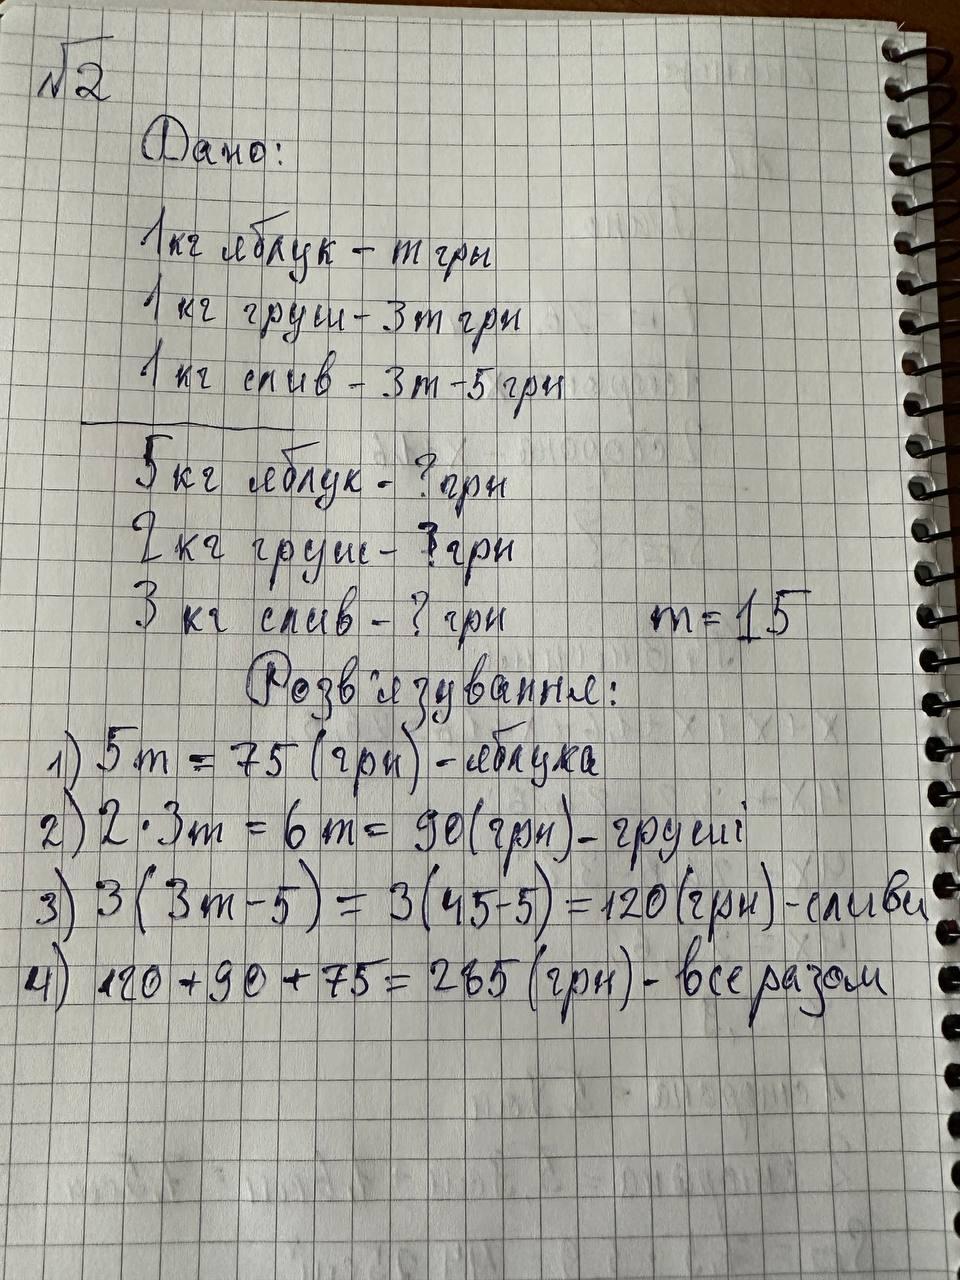 №2
Дано:
1кг яблук - m грн
1 кг груш - 3m грн
1 кг слив - 3m - 5 грн
5 кг яблук - ? грн
2 кг груш - ? грн
3 кг слив - ? грн m = 15
Розв'язування:
1) 5m = 75 (грн) - яблука
2) 2 · 3m = 6m = 90 (грн) - груші
3) 3(3m - 5) = 3(45 - 5) = 120 (грн) - сливи
4) 120 + 90 + 75 = 285 (грн) - все разом